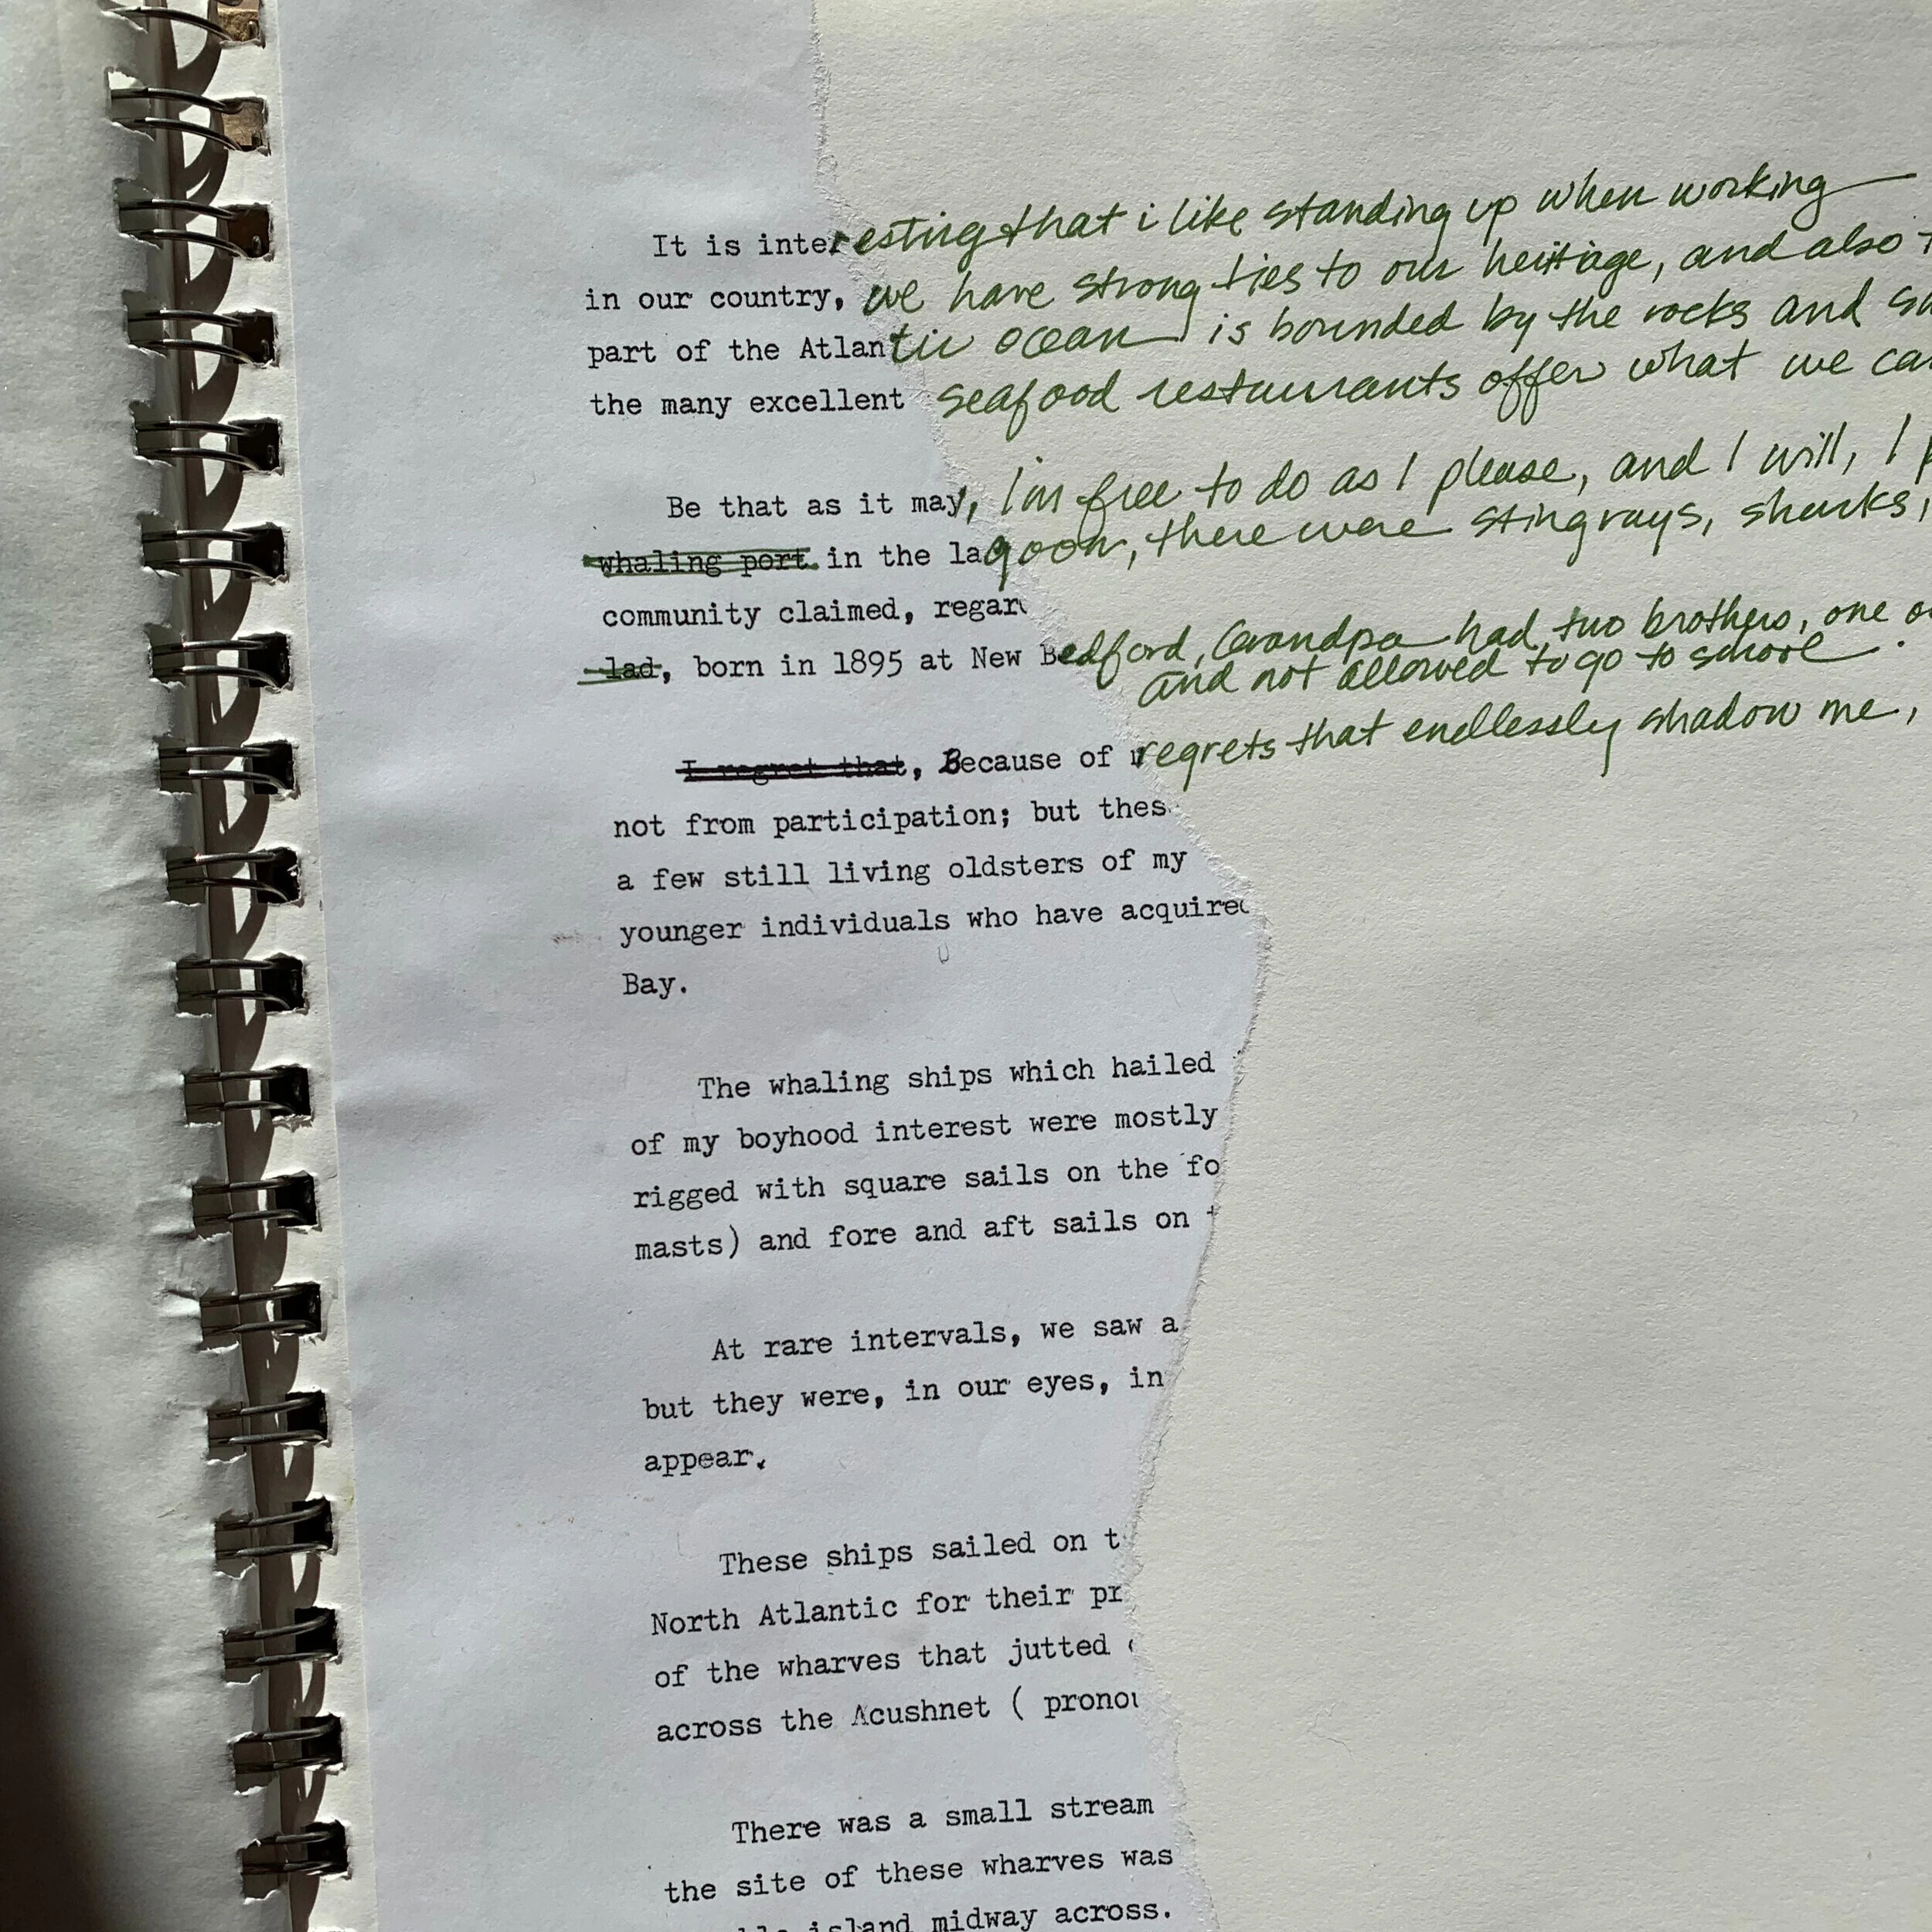 It is interesting that i like standing up when working
in our country, we have strong ties to our heritage, and also
part of the Atlantic ocean is bounded by the rocks and
the many excellent seafood restaurants offer what we
Be that as it may, I'm free to do as I please, and I will, I
whaling port in the lagoon, there were stingrays, sharks,
community claimed, regar
lad, born in 1895 at New Bedford, Grandpa had two brothers, one
and not allowed to go to school.
I regret that, Because of regrets that endlessly shadow me,
not from participation; but thes
a few still living oldsters of my
younger individuals who have acquired
Bay.
The whaling ships which hailed
of my boyhood interest were mostly
rigged with square sails on the fo
masts) and fore and aft sails on
At rare intervals, we saw a
but they were, in our eyes, in
appear.
These ships sailed on t
North Atlantic for their pr
of the wharves that jutted
across the Acushnet ( pronou
There was a small stream
the site of these wharves was
island midway across.